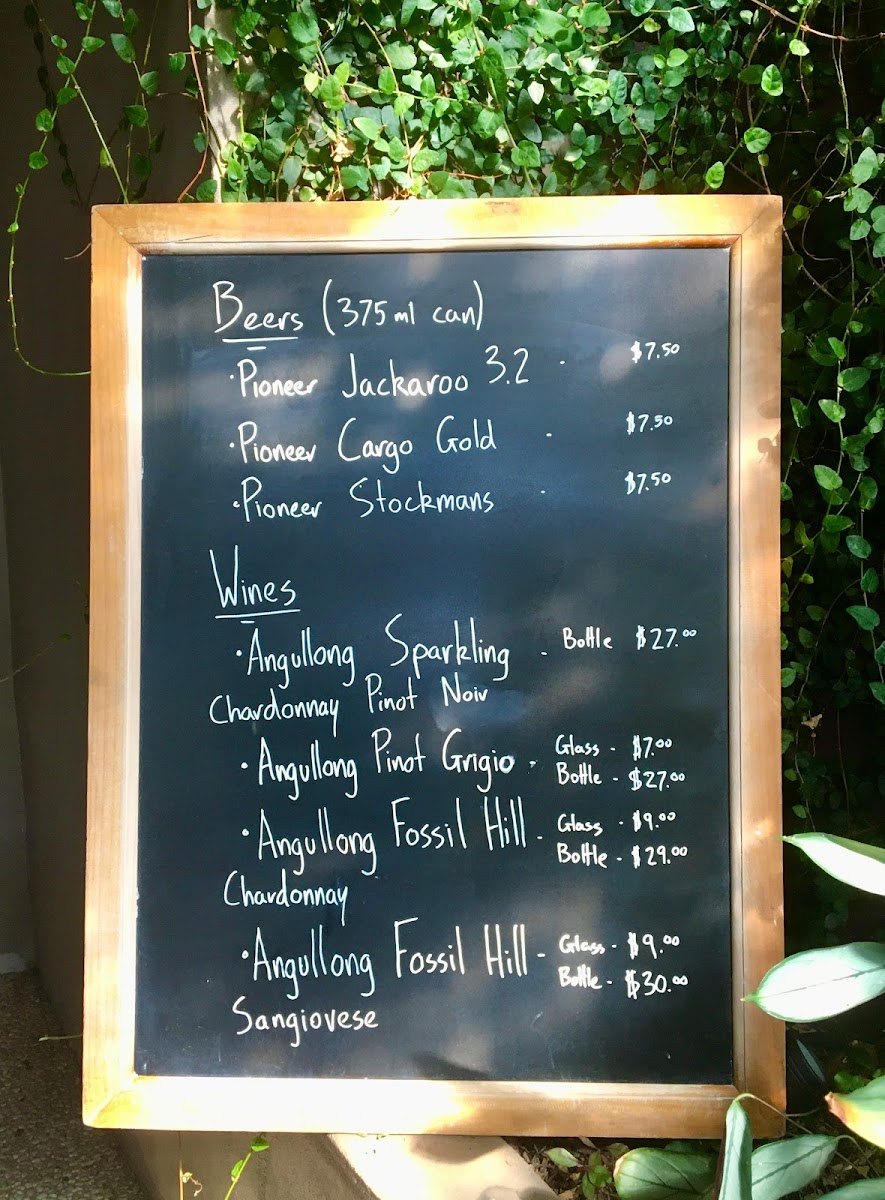 Beers (375ml can)
· Pioneer Jackaroo 3.2 - $7.50
· Pioneer Cargo Gold - $7.50
· Pioneer Stockmans - $7.50
Wines
· Angullong Sparkling - Bottle $27.00
Chardonnay Pinot Noir
· Angullong Pinot Grigio - Glass - $7.00
Bottle - $27.00
· Angullong Fossil Hill - Glass - $9.00
Bottle - $29.00
Chardonnay
· Angullong Fossil Hill - Glass - $9.00
Bottle - $30.00
Sangiovese